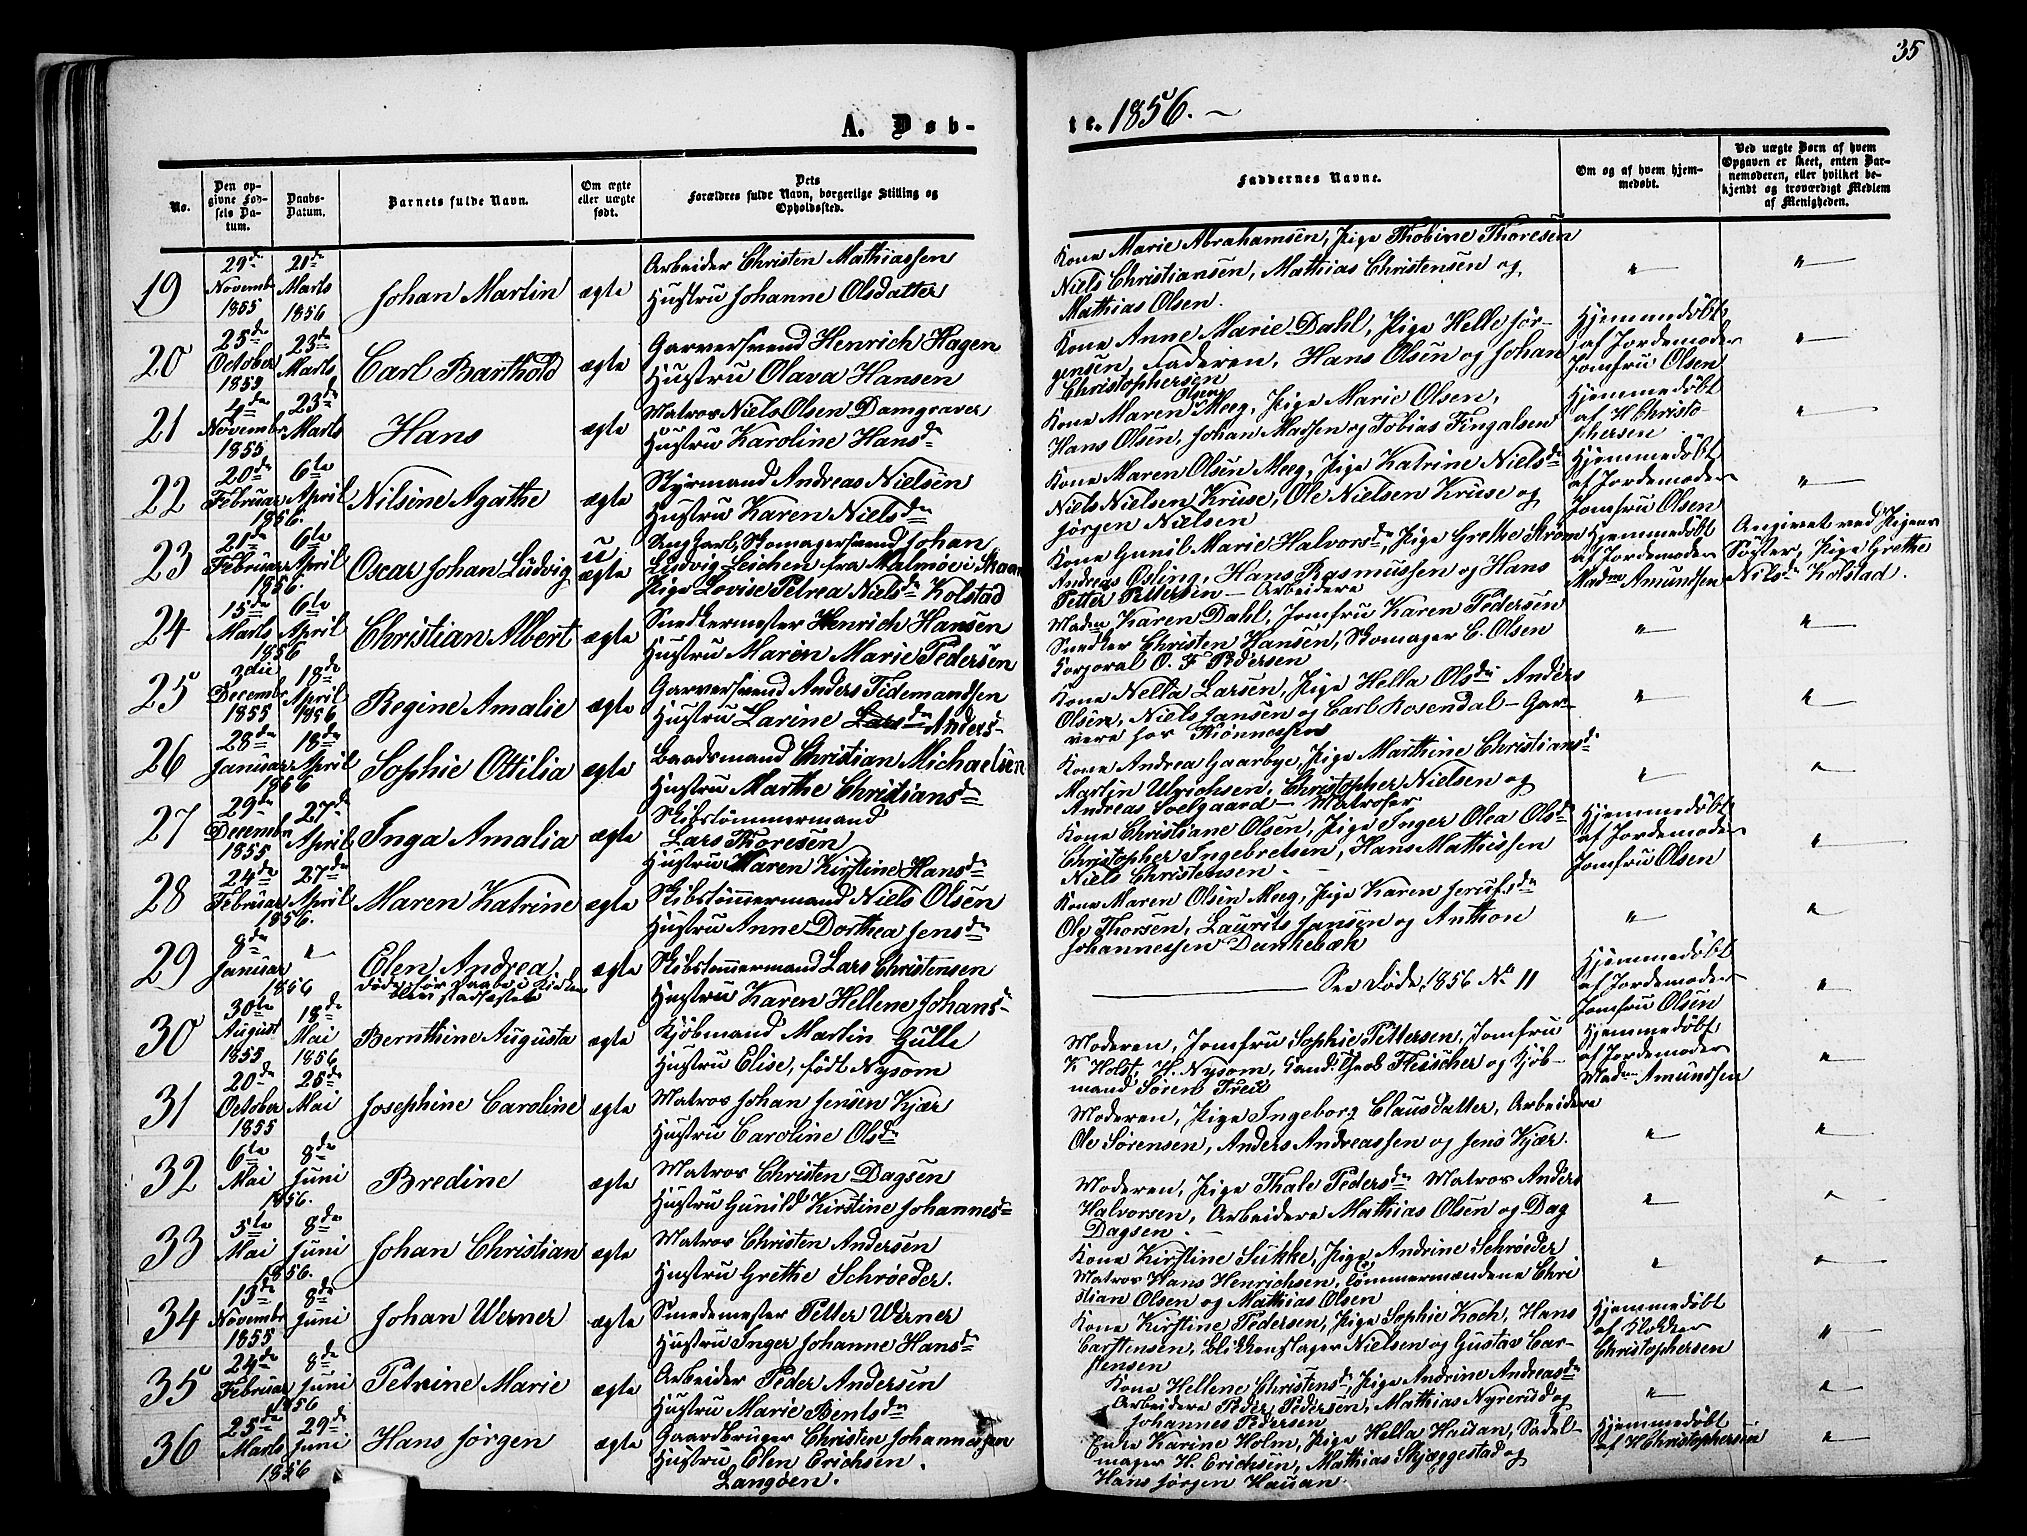 35
A. Døb-
te. 1856.
No.
Den op-
givne Fød-
sels Da-
tum.
Daabs-
Datum.
Barnets fulde Navn.
Om ægte
eller uægte
født.
Dets
Forældres fulde Navn, borgerlige Stilling og
Opholdssted.
Faddernes Navne.
Om og af hvem hjem-
medøbt.
Ved uægte Børn af hvem
Opgaven er skeet, enten Bar-
nemoderen, eller hvilket be-
kjendt og troværdigt Medlem
af Menigheden.
19
29de
Novembr
1855
21de
Marts
1856
Johan Martin
ægte
Arbeider Christen Mathiassen
Hustru Johanne Olsdatter
Kone Marie Abrahamsen, Pige Thobine Thoresen
Niels Christiansen, Mathias Christensen og
Mathias Olsen.
"
"
20
25de
October
1855
23de
Marts
Carl Barthold
ægte
Garversvend Henrich Hagen
Hustru Olava Hansen
Kone Anne Marie Dahl, Pige Helle Jør-
gensen, Faderen, Hans Olsen og Johan
Christophersen
Hjemmedøbt
af Jordemoder
Jomfru Olsen
"
21
4de
Novembr
1855
23de
Marts
Hans
ægte
Matros Niels Olsen Damgraver
Hustru Karoline Hansdr
Kone Maren Olsen Meeg, Pige Marie Olsen,
Hans Olsen, Johan Madsen og Tobias Fingalsen
Hjemmedøbt
af H Christo-
phersen.
"
22
20de
Februar
1856.
6te
April
Nilsine Agathe
ægte
Styrmand Andreas Nielsen
Hustru Karen Nielsdr
Kone Maren Olsen Meeg, Pige Katrine Nielsdr
Niels Nielsen Kruse, Ole Nielsen Kruse og
Jørgen Nielsen
Hjemmedøbt
af Jordemoder
Jomfru Olsen
"
23
21de
Februar
1856.
6te
April
Oscar Johan Ludvig
u
ægte
Ung Karl, Skomagersvend Johan
Ludvig Leichen fra Malmöe i Skaane
Pige Lovise Petrea Nielsdr Kolstad
Kone Gunil Marie Halvorsdr, Pige Grethe Strøm
Andreas Østing, Hans Rasmussen og Hans
Petter Pettersen – Arbeidere
Hjemmedøbt
af Jordemoder
Madm Amundsen
Angivet ved Pigens
Søster, Pige Grethe
Nilsdr Kolstad.
24
15de
Marts
1856
6te
April
Christian Albert
ægte
Snedkermester Henrich Hansen
Hustru Maren Marie Pedersen
Madm Karen Dahl, Jomfru Karen Pedersen
Snedker Christen Hansen, Skomager C. Olsen
Korporal O. F. Pedersen
"
"
25
3die
Decembr
1855
18de
April
1856
Regine Amalie
ægte
Garversvend Anders Tidemandsen
Hustru Larine Larsdr Anders-
Kone Nella Larsen, Pige Hella Olsdr Anders
Olsen, Niels Jansen og Carl Rosendal – Gar-
vere hos Rønnessen
"
"
26
28de
Januar
1856
18de
April
Sophie Ottilia
ægte
Baadsmand Christian Michaelsen
Hustru Marthe Christiansdr
Kone Andrea Gaarbye, Pige Marthine Christiansdr
Martin Ulrichsen, Christopher Nielsen og
Andreas Soelgaard – Matroser
"
"
27
29de
Decembr
1855
27de
April
Inga Amalia
ægte
Skibstømmermand
Lars Thoresen
Hustru Maren Kirstine Hansdr
Kone Christiane Olsen, Pige Inger Olea Olsdr
Christopher Ingebretsen, Hans Mathissen
Niels Christensen
Hjemmedøbt
af Jordemoder
Jomfru Olsen
"
28
24de
Februar
1856.
27de
April
Maren Katrine
ægte
Skibstømmermand Niels Olsen
Hustru Anne Dorthea Jensdr
Kone Maren Olsen Meeg, Pige Karen Jerufsdr
Ole Thorsen, Laurits Jansen og Anthon
Johannessen Dunkebæk
"
"
29
8de
Januar
1856
"
Elen Andrea
døde før Daabe i Kirken
blev stadfæstet
ægte
Skibstømmermand Lars Christensen
Hustru Karen Hellene Johans-
See Døde 1856 No 11
Hjemmedøbt
af Jordemoder
Jomfru Olsen
"
30
30te
August
1855
18de
Mai
1856
Bernthine Augusta
ægte
Kjøbmand Martin Gulle
Hustru Elise, født Nysom
Moderen, Jomfru Sophie Pettersen, Jomfru
K Holst, H. Nysom, Cand. Geob Fleischer og Kjøb-
mand Søren Freit
Hjemmedøbt
af Jordemoder
Madm Amundsen
"
31
20de
October
1855
25de
Mai
Josephine Caroline
ægte
Matros Johan Jensen Kjær
Hustru Caroline Olsdr
Moderen, Pige Ingeborg Clausdatter, Arbeidere
Ole Sørensen, Anders Andreassen og Jens Kjær.
"
"
32
6te
Mai
1856.
8de
Juni
Bredine
ægte
Matros Christen Dagsen
Hustru Gunild Kirstine Johannes-
Moderen, Pige Thale Pedersdr Matros Anders
Halvorsen, Arbeidere Mathias Olsen og Dag
Dagsen.
"
"
33
5te
Mai
1856.
8de
Juni
Johan Christian
ægte
Matros Christen Andersen
Hustru Grethe Schrøeder.
Kone Kirstine Sukke, Pige Andrine Schrøeder
Matros Hans Henrichsen, Tømmermændene Chri
stian Olsen og Mathias Olsen
"
"
34
13de
Novembr
1855
8de
Juni
Johan Werner
ægte
Smedemester Petter Werner
Hustru Inger Johanne Hansdr
Kone Kirstine Pedersen, Pige Sophie Koch, Hans
Carstensen, Blikkenslager Nielsen og Gustav Car-
stensen
Hjemmedøbt
af Klokker
Christophersen
"
35
24de
Februar
1856
8de
Juni
Petrine Marie
ægte
Arbeider Peder Andersen
Hustru Marie Bentsdr
Kone Hellene Christensdr, Pige Andrine Andreasdr
Arbeidere Peder Pedersen, Mathias Nyrerud og
Johannes Pedersen
"
"
36
25de
Marts
1856
29de
Juni
Hans Jørgen
ægte
Gaardbruger Christen Johannesen
Hustru Elen Erichsen.
Langøen.
Enke Karine Holm, Pige Hella Hauan, Sadel-
mager H. Erichsen, Mathias Skjæggestad og
Hans Jørgen Hauan.
Hjemmedøbt
af H Christophersen
"